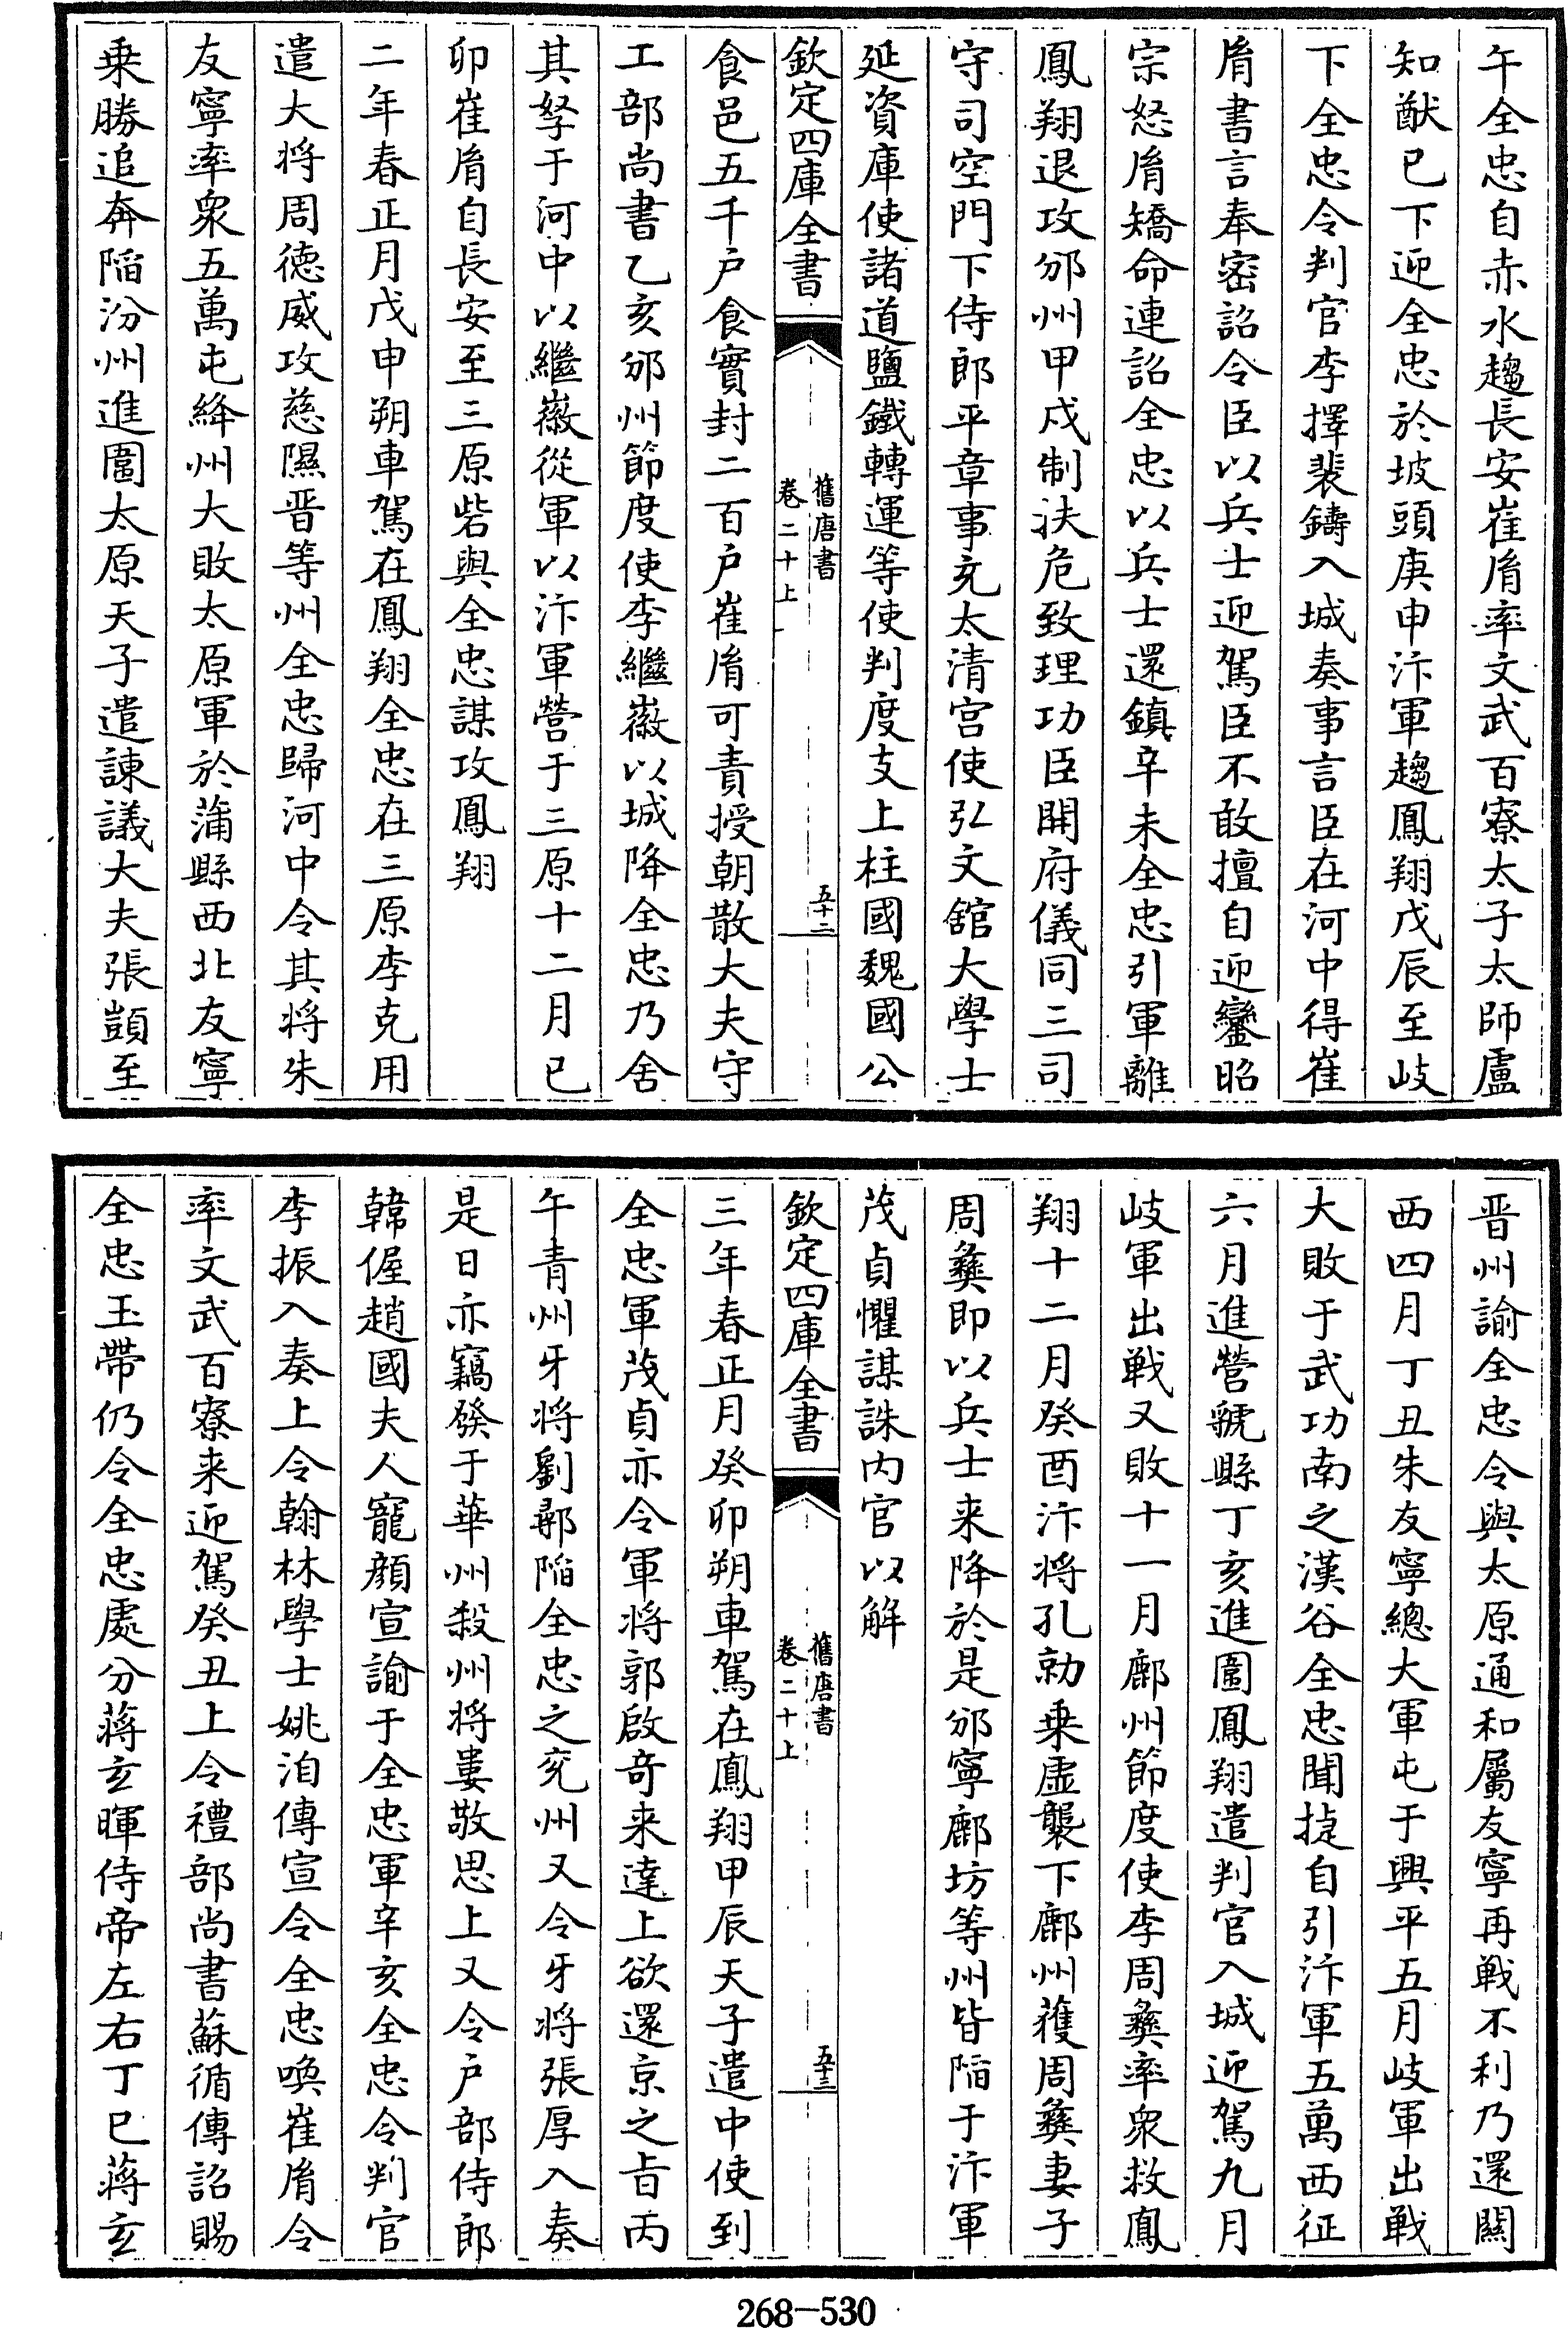 午全忠自赤水趨長安崔胤率文武百寮太子太師盧
知猷已下迎全忠於坡頭庚申汴軍趨鳳翔戊辰至岐
下全忠令判官李擇裴鑄入城奏事言臣在河中得崔
胤書言奉密詔令臣以兵士迎駕臣不敢擅自迎鑾昭
宗怒胤矯命連詔全忠以兵士還鎮辛未全忠引軍離
鳳翔退攻邠州甲戌制扶危致理功臣開府儀同三司
守司空門下侍郎平章事充太清宮使弘文館大學士
延資庫使諸道鹽鐵轉運等使判度支上柱國魏國公
欽定四庫全書
舊唐書
卷二十上
五十二
食邑五千戶食實封二百戶崔胤可責授朝散大夫守
工部尚書乙亥邠州節度使李繼徽以城降全忠乃舍
其孥于河中以繼徽從軍以汴軍營于三原十二月已
卯崔胤自長安至三原砦與全忠謀攻鳳翔
二年春正月戊申朔車駕在鳳翔全忠在三原李克用
遣大將周德威攻慈隰晋等州全忠歸河中令其將朱
友寧率衆五萬屯絳州大敗太原軍於蒲縣西北友寧
乗勝追奔陷汾州進圍太原天子遣諌議大夫張顗至
晋州諭全忠令與太原通和屬友寧再戰不利乃還關
西四月丁丑朱友寧總大軍屯于興平五月岐軍出戰
大敗于武功南之漢谷全忠聞捷自引汴軍五萬西征
六月進營虢縣丁亥進圍鳳翔遣判官入城迎駕九月
岐軍出戰又敗十一月鄜州節度使李周彝率衆救鳳
翔十二月癸酉汴將孔勍乗虛襲下鄜州獲周彝妻子
周彝即以兵士来降於是邠寧鄜坊等州皆陷于汴軍
茂貞懼謀誅内官以解
欽定四庫全書
舊唐書
卷二十上
五十三
三年春正月癸卯朔車駕在鳳翔甲辰天子遣中使到
全忠軍茂貞亦令軍將郭啟竒来達上欲還京之旨丙
午青州牙將劉鄩陷全忠之兖州又令牙將張厚入奏
是日亦竊發于華州殺州將婁敬思上又令户部侍郎
韓偓趙國夫人寵顔宣諭于全忠軍辛亥全忠令判官
李振入奏上令翰林學士姚洎傳宣令全忠喚崔胤令
率文武百寮来迎駕癸丑上令禮部尚書蘇循傳詔賜
全忠玉帶仍令全忠處分蔣玄暉侍帝左右丁巳蔣玄
268-530